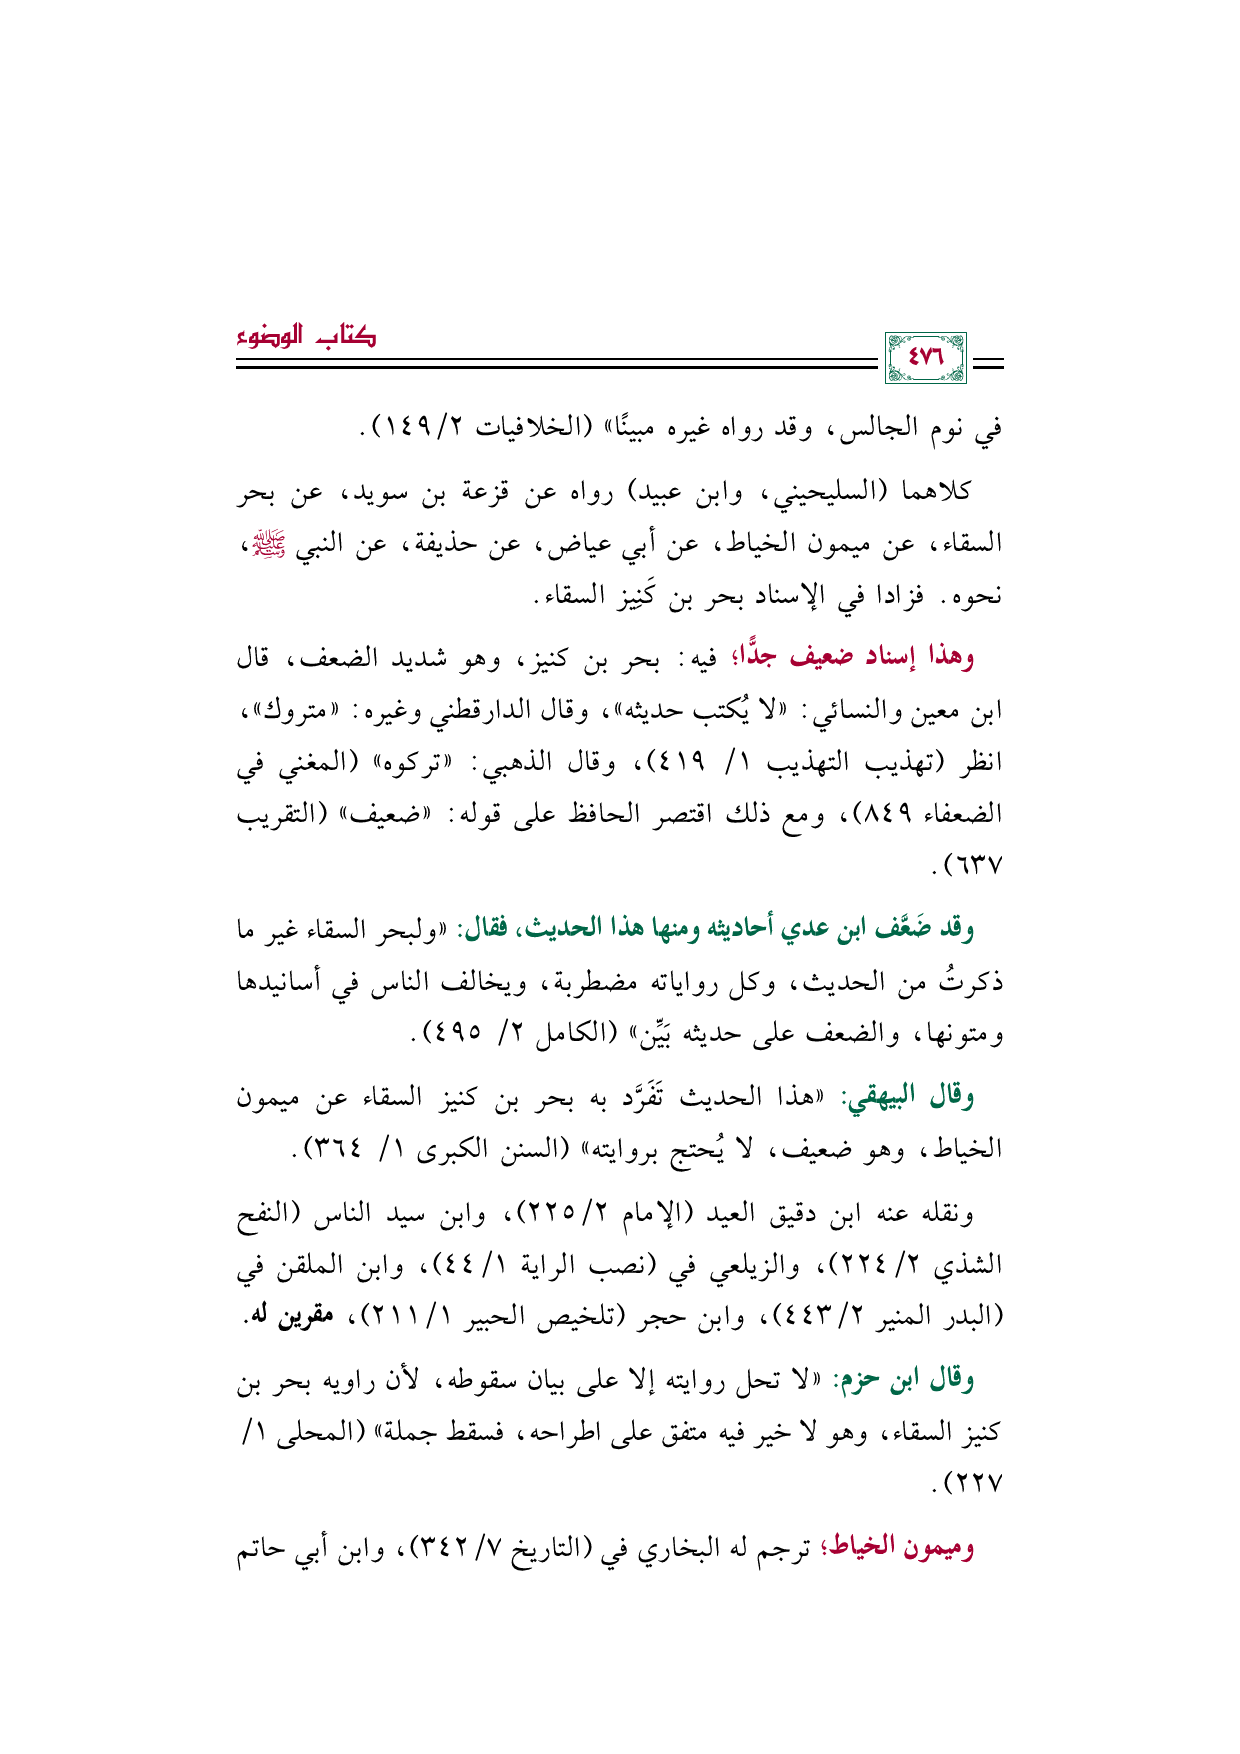 كتاب الوضوء
٤٧٦
في نوم الجالس، وقد رواه غيره مبينًا» (الخلافيات ٢/ ١٤٩).
كلاهما (السليحيني، وابن عبيد) رواه عن قزعة بن سويد، عن بحر
السقاء، عن ميمون الخياط، عن أبي عياض، عن حذيفة، عن النبي ﷺ،
نحوه. فزادا في الإسناد بحر بن كَنِيز السقاء.
وهذا إسناد ضعيف جدًّا؛ فيه: بحر بن كنيز، وهو شديد الضعف، قال
ابن معين والنسائي: «لا يُكتب حديثه»، وقال الدارقطني وغيره: «متروك»،
انظر (تهذيب التهذيب ١/ ٤١٩)، وقال الذهبي: «تركوه» (المغني في
الضعفاء ٨٤٩)، ومع ذلك اقتصر الحافظ على قوله: «ضعيف» (التقريب
٦٣٧).
وقد ضَعَّف ابن عدي أحاديثه ومنها هذا الحديث، فقال: «ولبحر السقاء غير ما
ذكرتُ من الحديث، وكل رواياته مضطربة، ويخالف الناس في أسانيدها
ومتونها، والضعف على حديثه بَيِّن» (الكامل ٢/ ٤٩٥).
وقال البيهقي: «هذا الحديث تَفَرَّد به بحر بن كنيز السقاء عن ميمون
الخياط، وهو ضعيف، لا يُحتج بروايته» (السنن الكبرى ١/ ٣٦٤).
ونقله عنه ابن دقيق العيد (الإمام ٢/ ٢٢٥)، وابن سيد الناس (النفح
الشذي ٢/ ٢٢٤)، والزيلعي في (نصب الراية ١/ ٤٤)، وابن الملقن في
(البدر المنير ٢/ ٤٤٣)، وابن حجر (تلخيص الحبير ١/ ٢١١)، مقرين له.
وقال ابن حزم: «لا تحل روايته إلا على بيان سقوطه، لأن راويه بحر بن
كنيز السقاء، وهو لا خير فيه متفق على اطراحه، فسقط جملة» (المحلى ١/
٢٢٧).
وميمون الخياط؛ ترجم له البخاري في (التاريخ ٧/ ٣٤٢)، وابن أبي حاتم